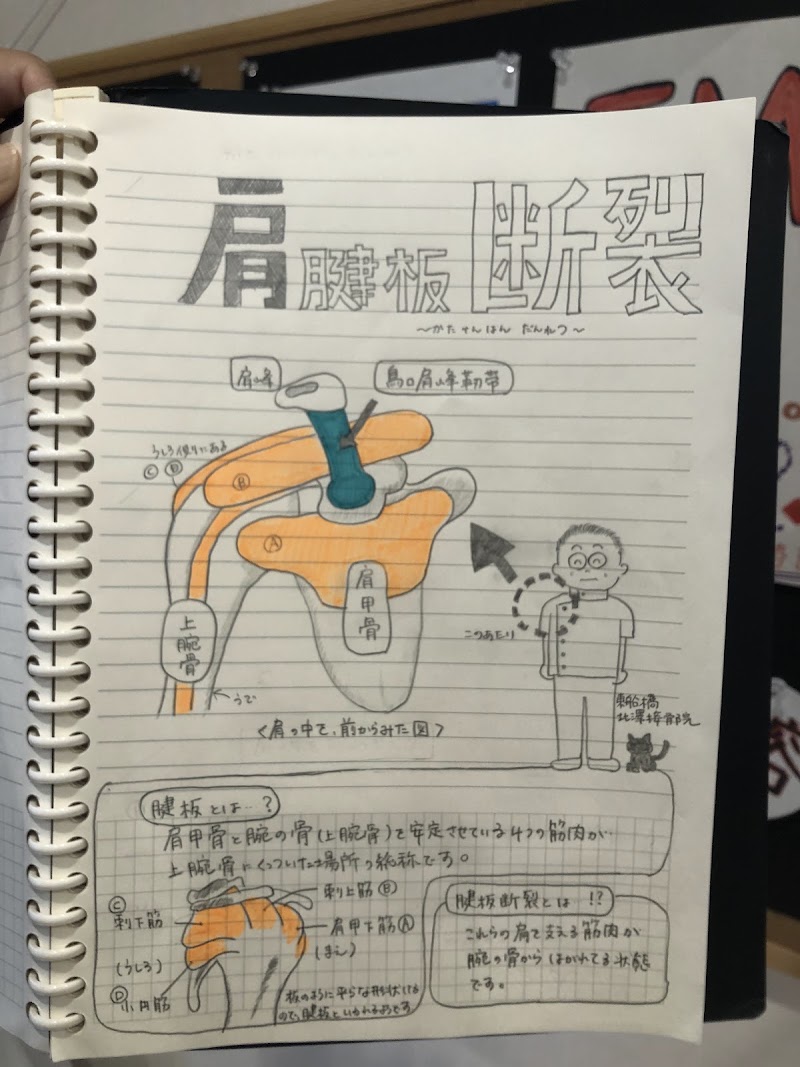 肩腱板断裂
～かたけんばん だんれつ～
肩峰
烏口肩峰靭帯
うしろ側にある
Ⓒ Ⓓ
Ⓑ
Ⓐ
肩甲骨
上腕骨
うで
このあたり
<肩の中で、前からみた図>
東船橋
北澤接骨院
腱板とは…?
肩甲骨と腕の骨(上腕骨)を安定させている4つの筋肉が
上腕骨にくっついた場所の総称です。
Ⓒ
棘下筋
(うしろ)
Ⓓ
小円筋
棘上筋 Ⓑ
肩甲下筋 Ⓐ
(まえ)
板のように平らな形状してる
ので、腱板といわれるようです
腱板断裂とは !?
これらの肩を支える筋肉が
腕の骨から はがれてる状態
です。